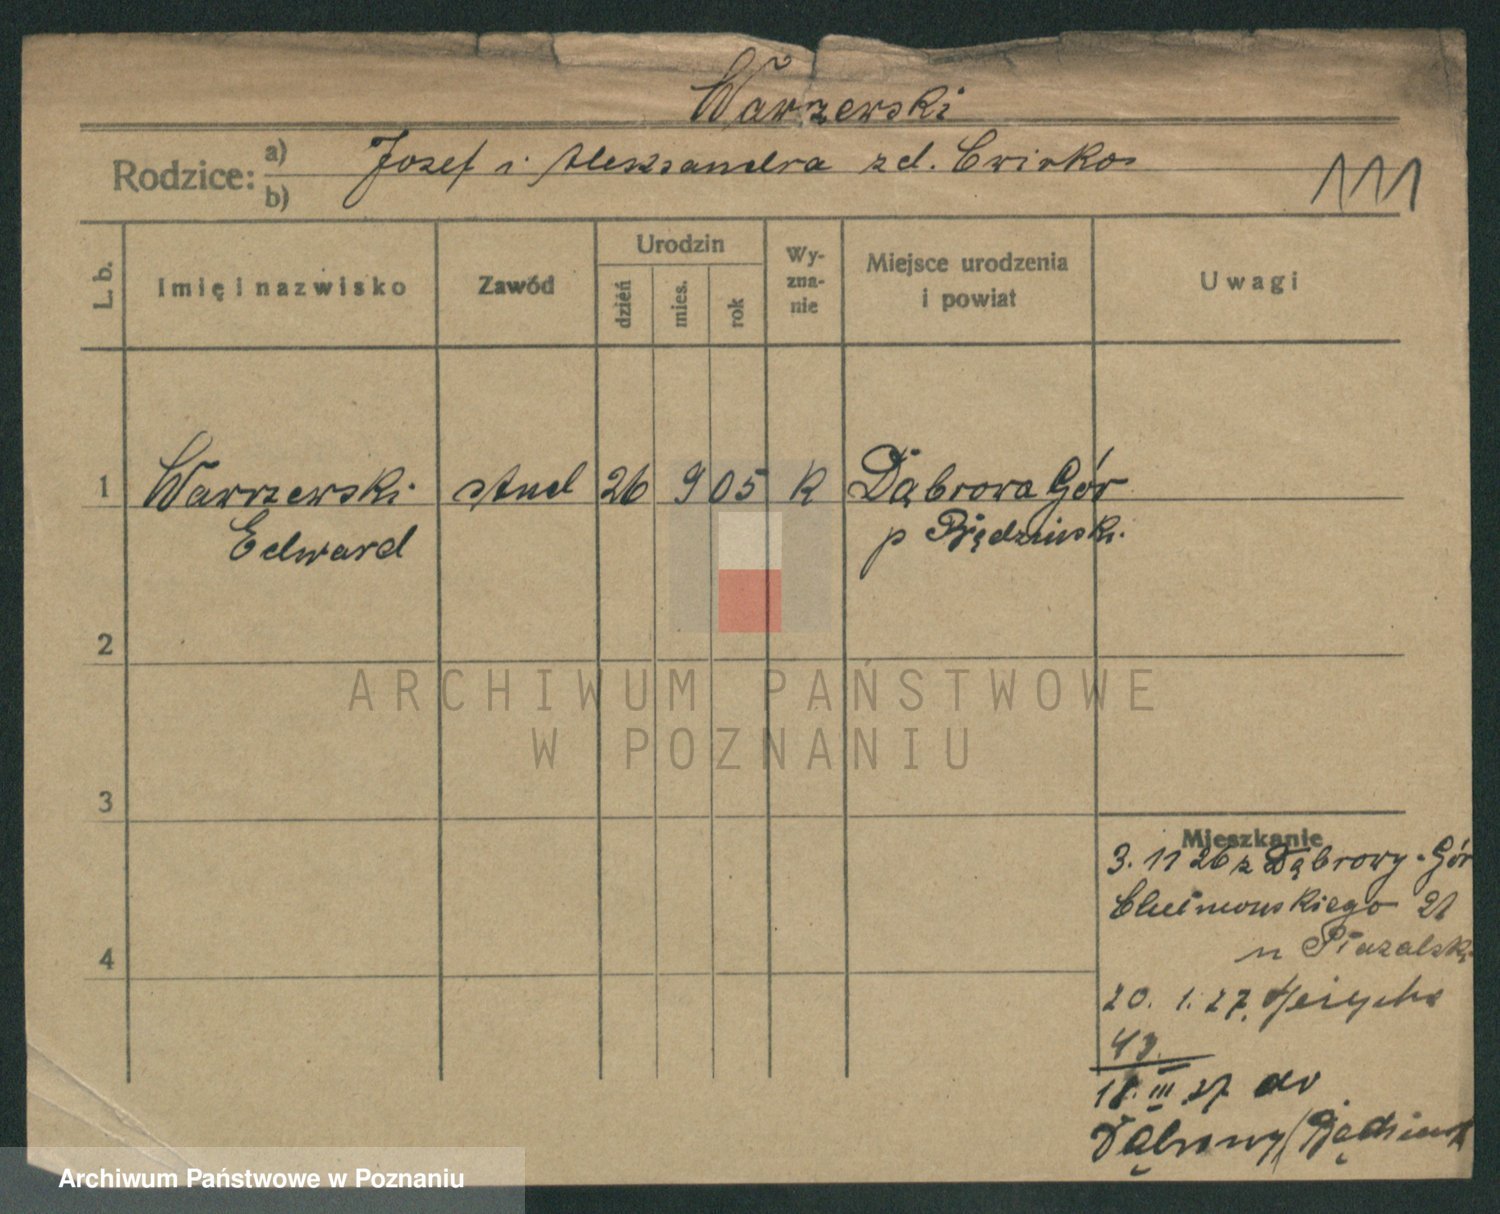 Warzewski
Rodzice: a) b) Jozef i Aleksandra zd. Cwirko
111
L. b.
Imię i nazwisko
Zawód
Urodzin
dzień
mies.
rok
Wy-
zna-
nie
Miejsce urodzenia
i powiat
Uwagi
1 Warzewski stud 26 9 05 k Dąbrowa Gór
Edward p Będziński
2
3
4
Mieszkanie
3. 11 26 z Dąbrowy Gór
21
20. 1. 27.
43.
18. III 27 do
Dąbrowy
ARCHIWUM PAŃSTWOWE
W POZNANIU
Archiwum Państwowe w Poznaniu